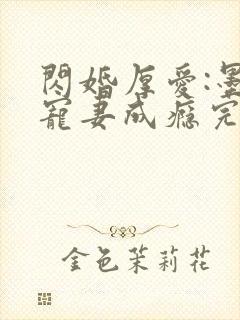 閃婚厚愛:墨
寵妻成癮完
金色茉莉花